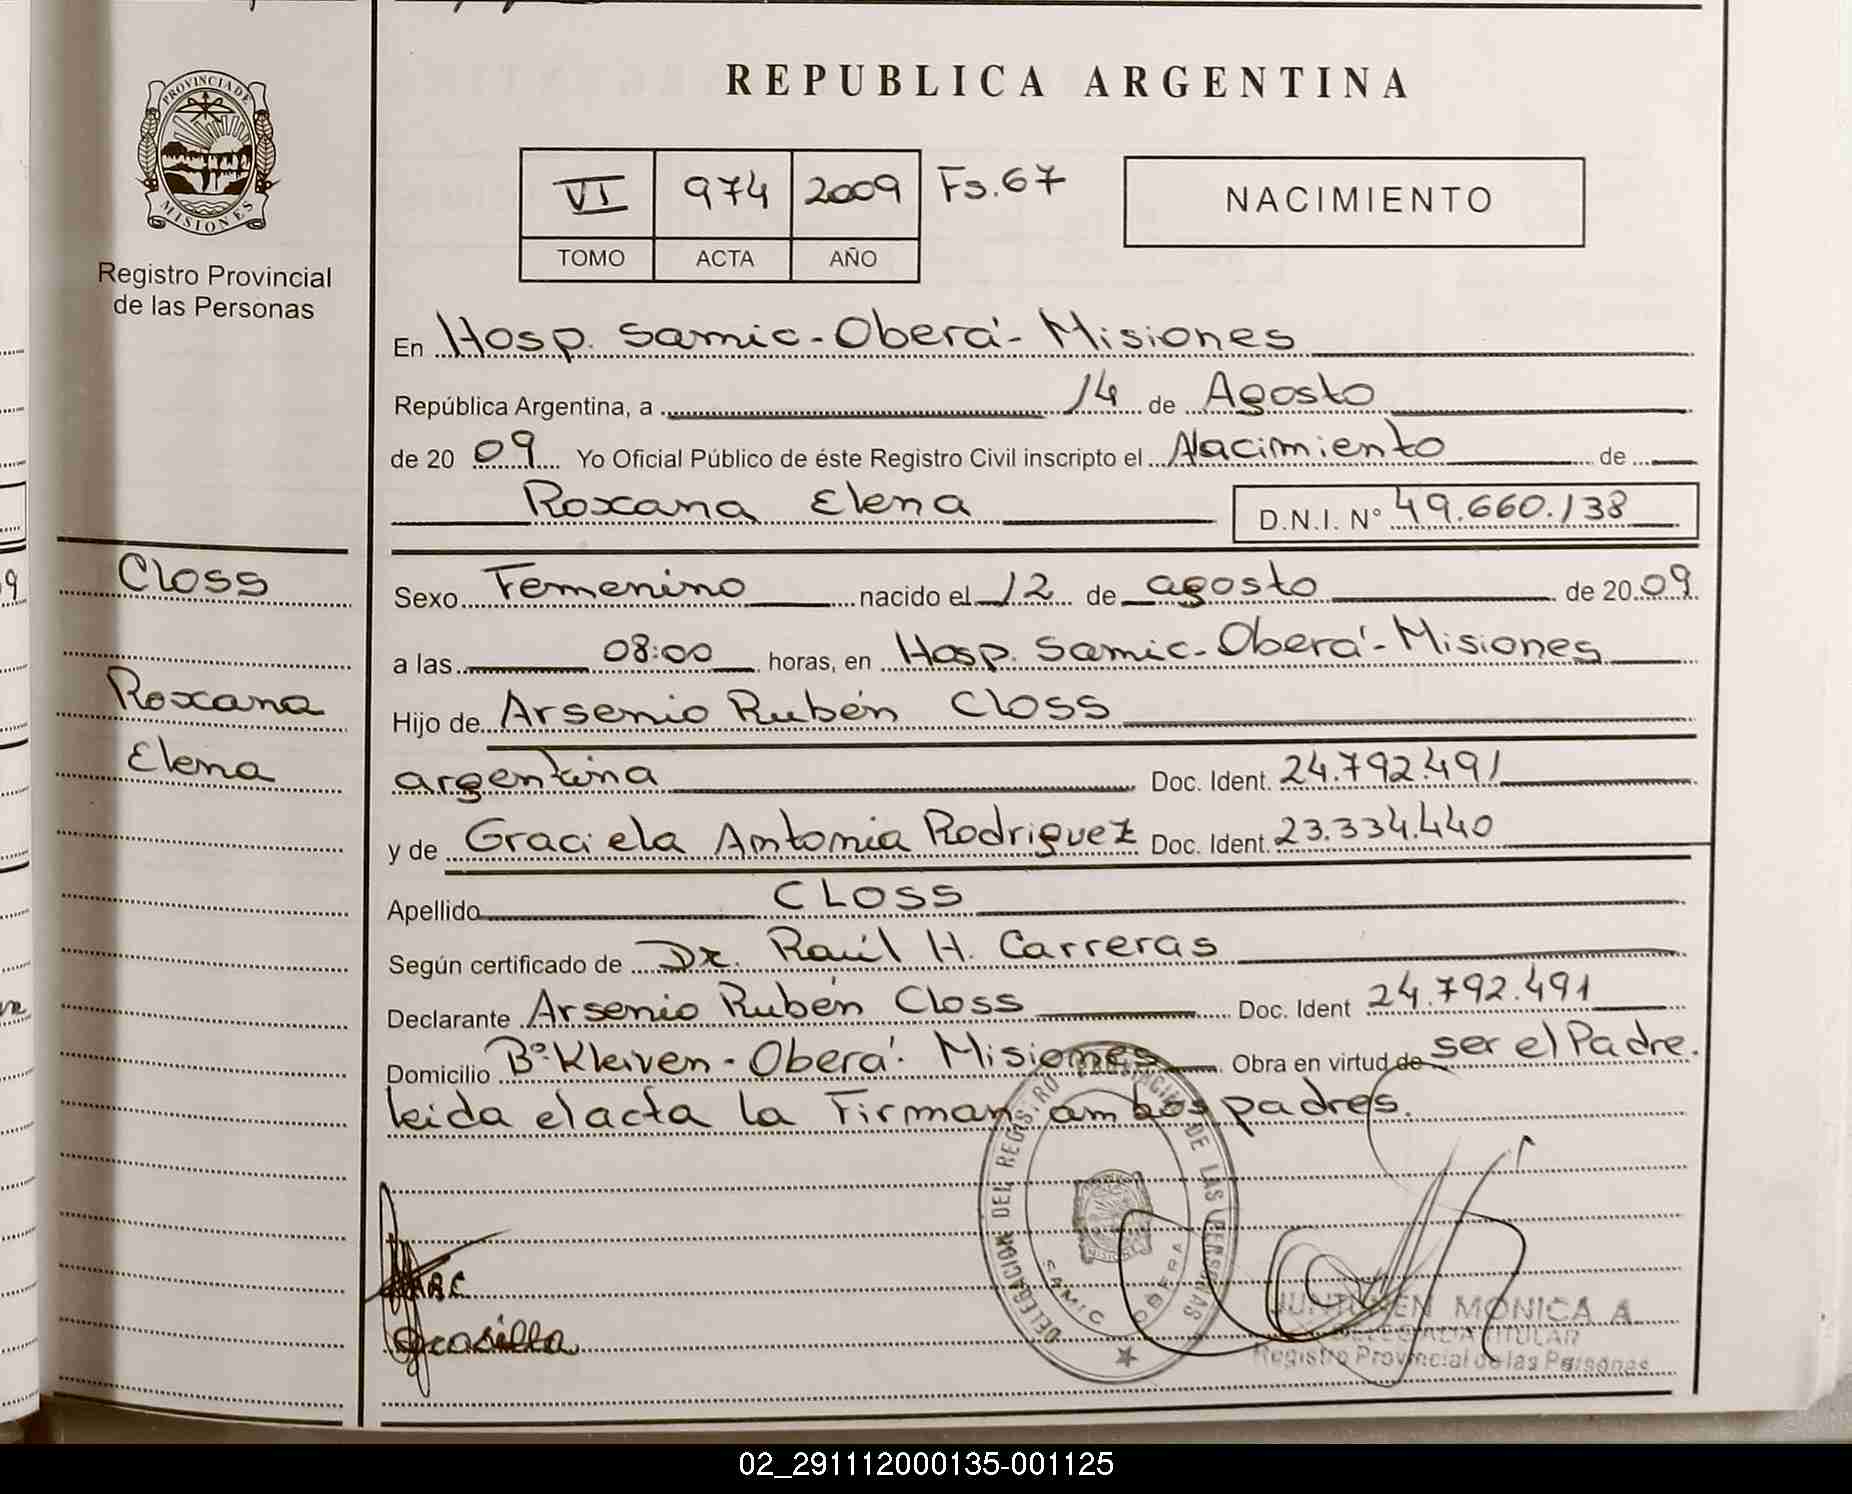 REPUBLICA ARGENTINA
PROVINCIA DE MISIONES
Registro Provincial
de las Personas
VI 974 2009 Fs. 67
TOMO ACTA AÑO
NACIMIENTO
En Hosp. Samic - Oberá - Misiones
República Argentina, a 14 de Agosto
de 20 09 Yo Oficial Público de éste Registro Civil inscripto el Nacimiento de
Roxana Elena D.N.I. N° 49.660.138
Closs
Roxana
Elena
Sexo Femenino nacido el 12 de agosto de 20 09
a las 08:00 horas, en Hosp. Samic - Oberá - Misiones
Hijo de Arsenio Rubén Closs
argentina Doc. Ident. 24.792.491
y de Graciela Antonia Rodriguez Doc. Ident. 23.334.440
Apellido CLOSS
Según certificado de Dr. Raúl H. Carreras
Declarante Arsenio Rubén Closs Doc. Ident 24.792.491
Domicilio B° Kleiven - Oberá - Misiones Obra en virtud de ser el Padre.
leida el acta la Firman ambos padres.
DELEGACION DEL REGISTRO PROVINCIAL DE LAS PERSONAS
SAMIC OBERA
MISIONES
MONICA A.
DELEGADA TITULAR
Registro Provincial de las Personas
02_291112000135-001125